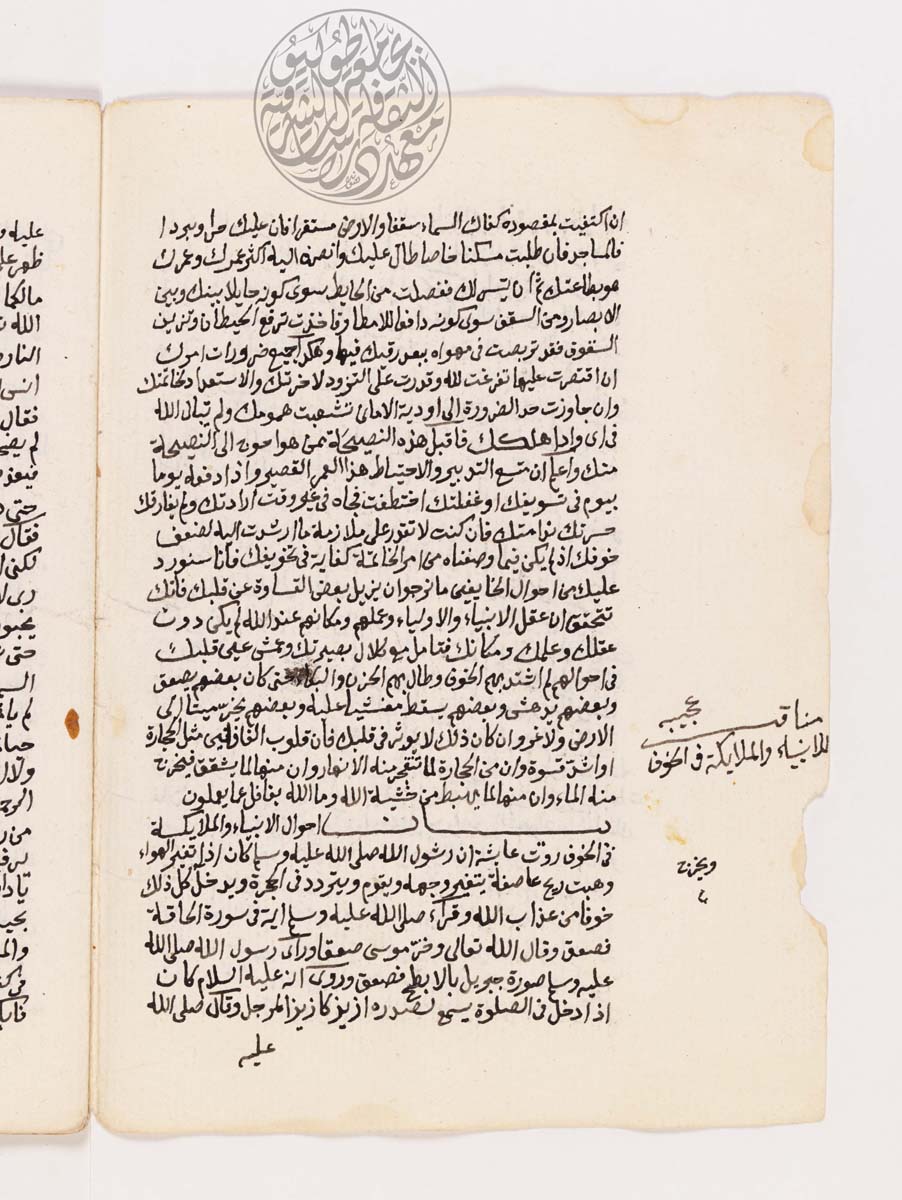 ان اكتفيت بمقصوده كفاك السماء سقفا والارض مستقرا فان عليك حر او برد ا
فالمساجد فان طلبت مسكنا خاصا طال عليك وانصرف اليه اكثر عمرك وعمرك
هو بضاعتك ثم ان تيسر لك فقصدت من الحايط سوى كونه حايلا بينك وبين
الابصار ومن السقف سوى كونه دافعا للامطار فاخذت ترفع الحيطان وتزين
السقوف فقد تربصت في مهواه يبعد رقيك فيها وهكذا جميع ضرورات امورك
ان اقتصرت عليها تفرغت لله وقدرت على التزود لاخرتك والاستعداد لخاتمتك
وان جاوزت حد الضرورة الى اودية الاماني تشعبت همومك ولم يبال الله
في اي واد اهلكك فاقبل هذه النصيحة ممن هو احوج الى النصيحة
منك واعلم ان متسع التدبير والاحتياط هذا العمر القصير واذا دفعته يوما
بيوم في تسويفك او غفلتك اختطفت فجاه في غير وقت ارادتك ولم يفارقك
حسرتك ندامتك فان كنت لا تقدر على ملازمة ما ارشدت اليه لضعف
خوفك اذ لم يكن فيما وصفناه من امر الخاتمة كفاية في تخويفك فانا سنورد
عليك من احوال الخايفين ما نرجو ان يزيل بعض القساوة عن قلبك فانك
تتحقق ان عقل الانبياء والاولياء وعملهم ومكانهم عند الله لم يكن دون
عقلك وعملك ومكانك فتامل مع كلال بصيرتك وعمش عين قلبك
في احوالهم لم اشتد بهم الخوف وطال بهم الحزن والبكاء حتى كان بعضهم يصعق
وبعضهم يدهش وبعضهم يسقط مغشيا عليه وبعضهم يخر ميتا الى
الارض ولا غرو ان كان ذلك لا يوثر في قلبك فان قلوب الغافلين مثل الحجارة
او اشد قسوة وان من الحجارة لما تتفجر منه الانهار وان منها لما يشقق فيخرج
منه الماء وان منها لما يهبط من خشية الله وما الله بغافل عما يعملون
بيان احوال الانبياء والملايكة
في الخوف روت عايشة ان رسول الله صلى الله عليه وسلم كان اذا تغير الهواء
وهبت ريح عاصفة يتغير وجهه ويقوم ويتردد في الحجرة ويدخل كل ذلك
خوفا من عذاب الله وقراء صلى الله عليه وسلم اية في سورة الحاقة
فصعق وقال الله تعالى وخر موسى صعقا وراى رسول الله صلى الله
عليه وسلم صورة جبريل بالابطح فصعق وروى انه عليه السلام كان
اذا دخل في الصلوة يسمع لصدره ازيز كازيز المرجل وقال صلى الله
عليه
مناقب عجيبه
للانبياء والملايكة في الخوف
ويخرج